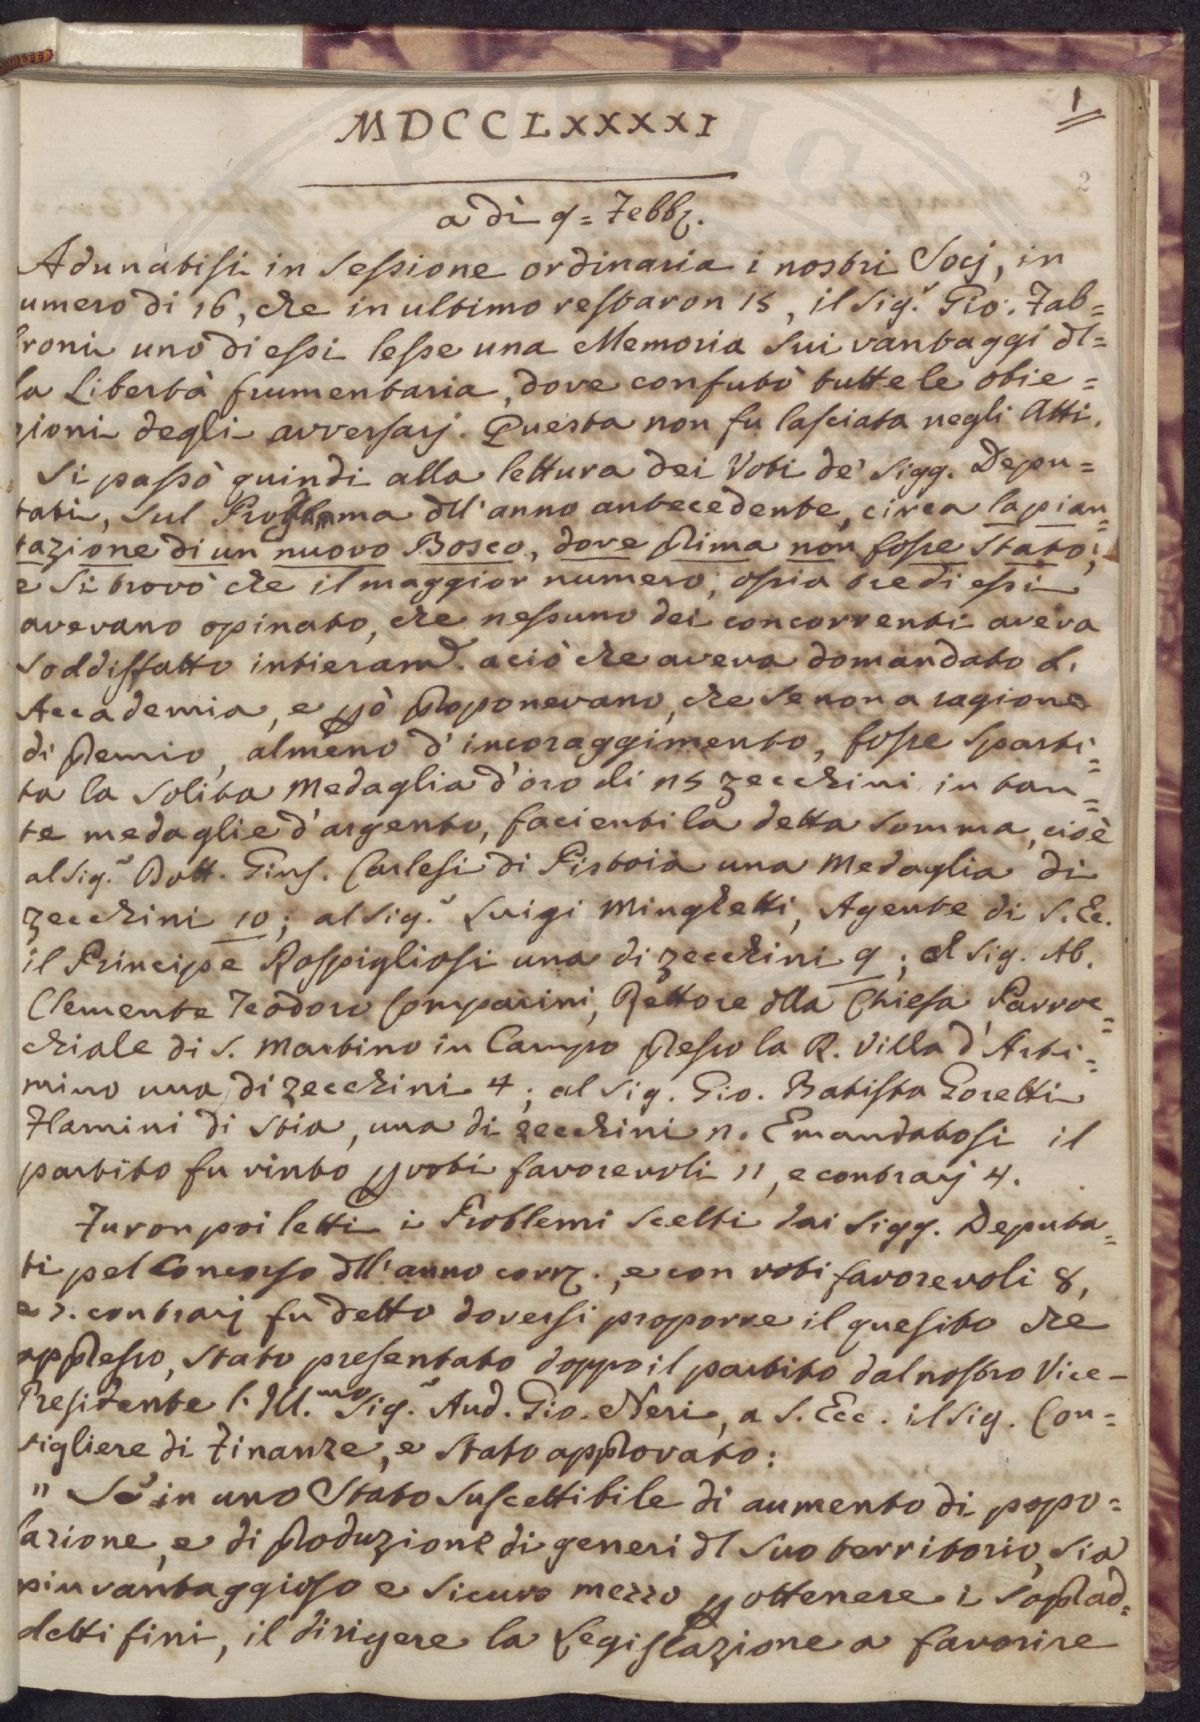 1
MDCCLXXXXI
2
a dì 9 = Febb.
Adunatisi in sessione ordinaria i nostri Socj, in
umero di 16, che in ultimo restaron 15, il Sig.r Gio. Fab=
roni uno di essi lesse una Memoria sui vantaggi dl=
la Libertà frumentaria, dove confutò tutte le obie=
zioni degli avversarj. Questa non fu lasciata negli Atti.
Si passò quindi alla lettura dei Voti de' Sigg. Depu=
tati, sul Programma dll'anno antecedente, circa la pian=
tazione di un nuovo Bosco, dove prima non fosse stato;
e si trovò che il maggior numero, ossia tre di essi
avevano opinato, che nessuno dei concorrenti aveva
soddisfatto intieram. a ciò che aveva domandato l'
Accademia, e però proponevano, che se non a ragione
di premio, almeno d'incoraggimento, fosse sparti=
ta la solita Medaglia d'oro di 25 zecchini in tan=
te medaglie d'argento, facienti la detta somma, cioè
al Sig.r Dott. Gius. Carlesi di Pistoia una Medaglia di
zecchini 10; al Sig.r Luigi Minghetti, Agente di S. Ec.
il Principe Rospigliosi una di zecchini 9; al Sig. Ab.
Clemente Teodoro Comparini, Rettore dlla Chiesa Parroc=
chiale di S. Martino in Campo presso la R. Villa d'Arti=
mino una di zecchini 4; al Sig. Gio. Batista Goretti
Flamini di Stia, una di zecchini 2. Emandatosi il
partito fu vinto per voti favorevoli 11, e contrarj 4.
Furon poi letti i Problemi scelti dai Sigg. Deputa=
ti pel Concorso dll'anno corr., e con voti favorevoli 8,
e 7. contrarj fu detto doversi proporre il quesito che
appresso, stato presentato doppo il partito dal nostro Vice-
Presidente l'Ill.mo Sig.r Aud. Gio. Neri, a S. Ecc. il Sig. Con=
sigliere di Finanze, e stato approvato:
" Se in uno Stato suscettibile di aumento di popo=
lazione, e di produzione di generi dl suo territorio, sia
piu vantaggioso e sicuro mezzo per ottenere i soprad=
detti fini, il dirigere la Legislazione a favorire